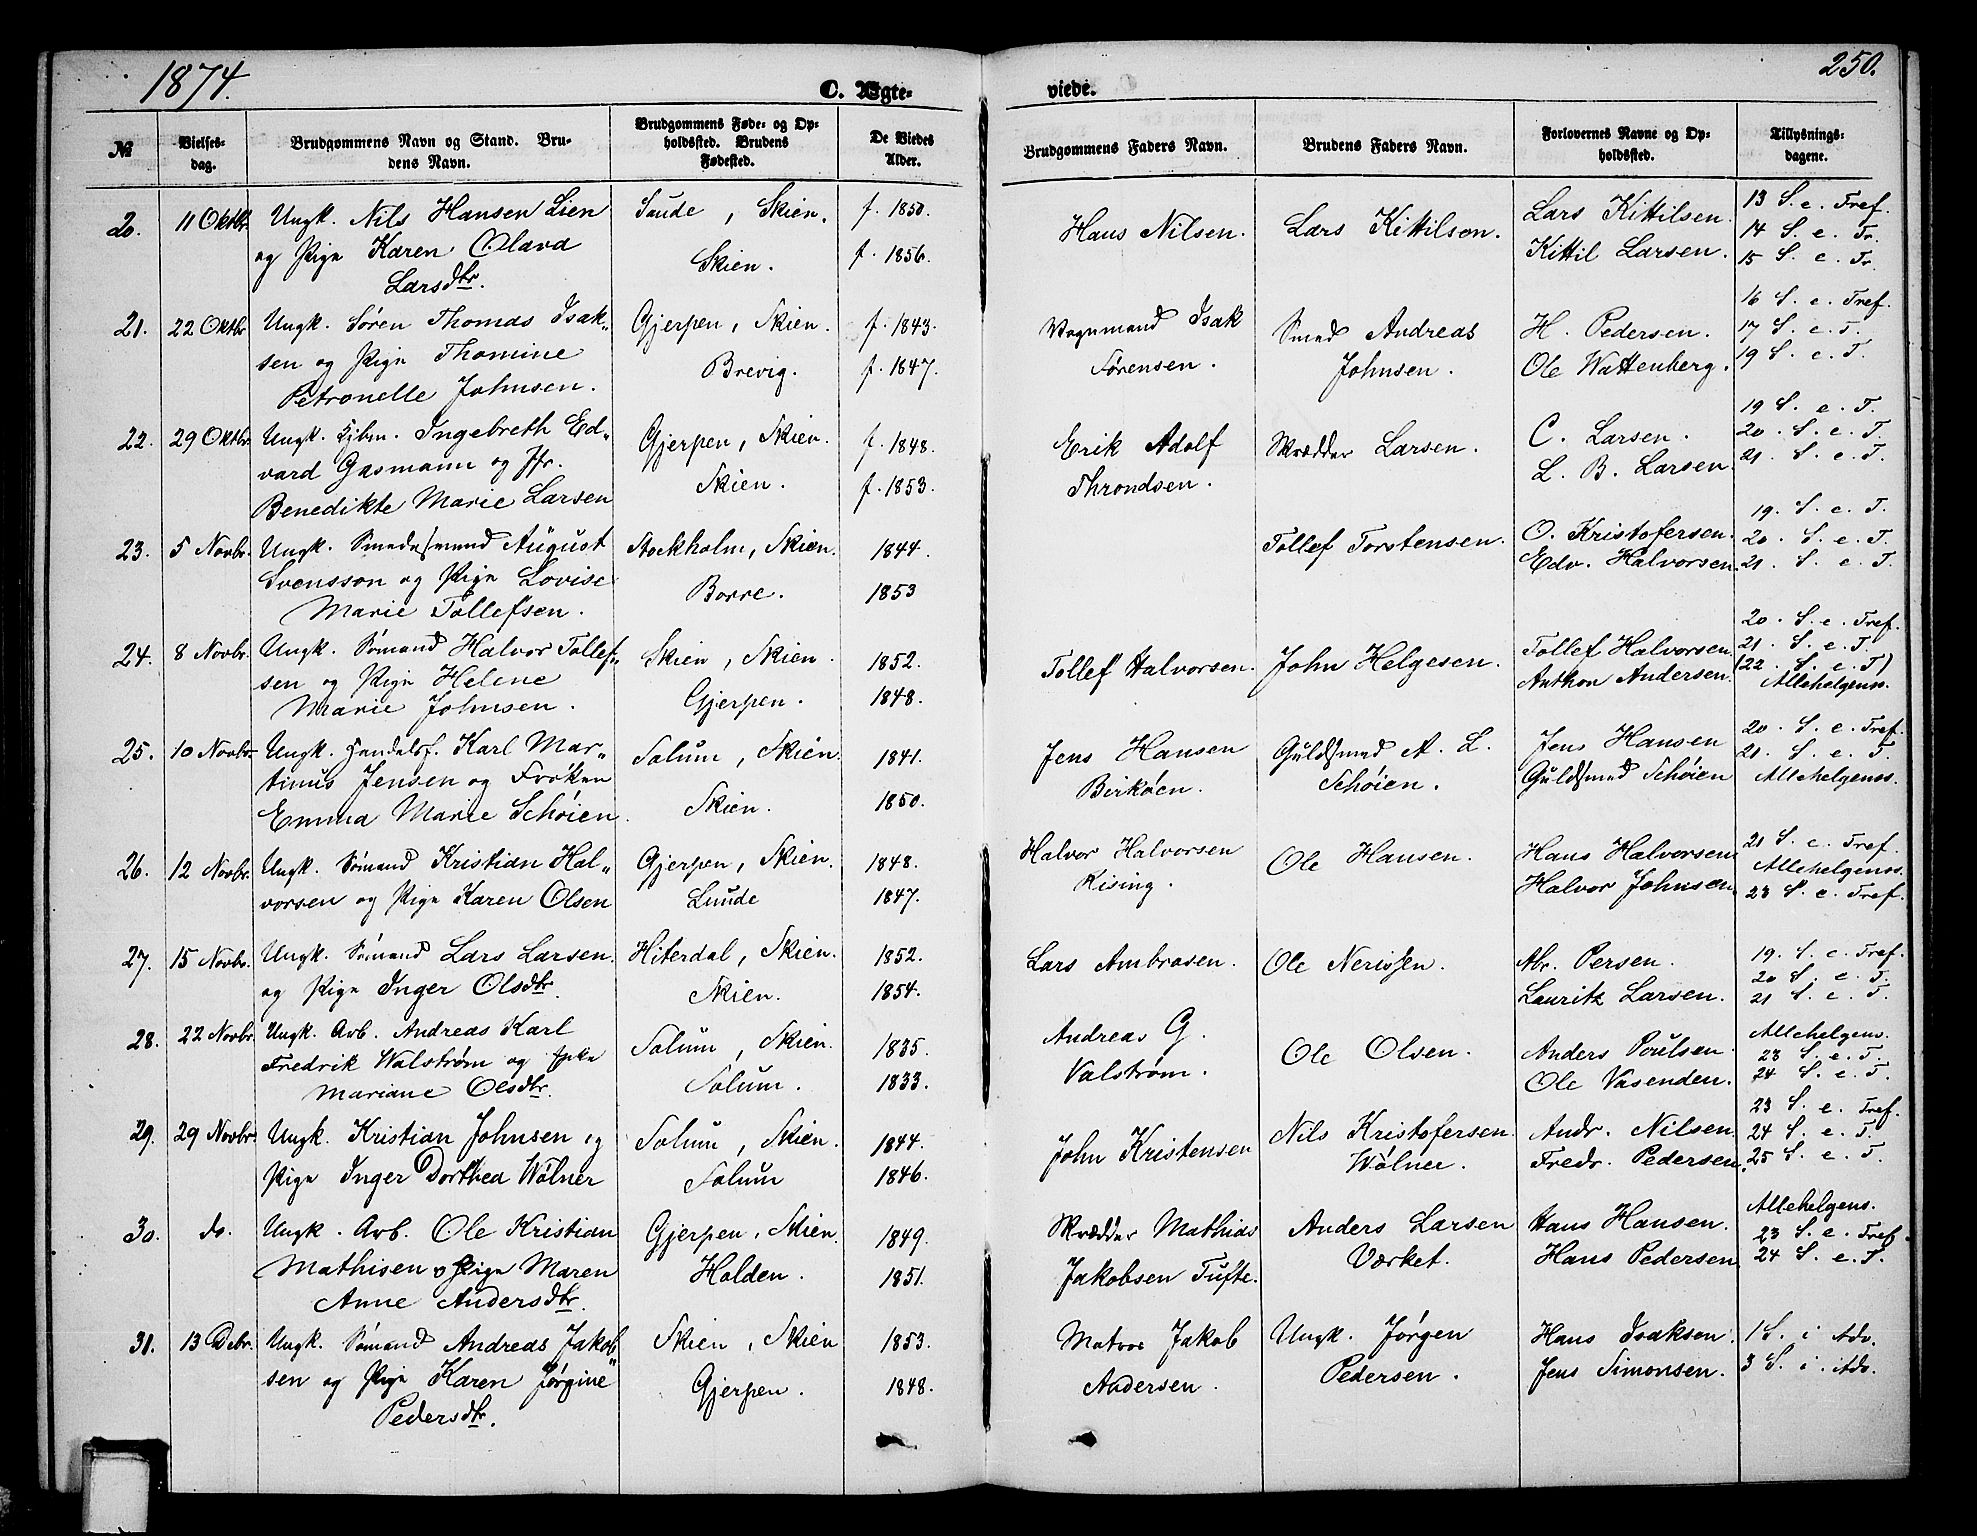 1874.
250.
C. Ægte-
viede.
№
Vielses-
dag.
Brudgommens Navn og Stand. Bru-
dens Navn.
Brudgommens Føde- og Op-
holdssted. Brudens
Fødested.
De Viedes
Alder.
Brudgommens Faders Navn.
Brudens Faders Navn.
Forlovernes Navne og Op-
holdssted.
Tillysnings-
dagene.
20. 11 Oktbr. Ungk. Nils Hansen Lien Saude, Skien. f. 1850. Hans Nilsen. Lars Kittilson. Lars Kittilsen. 13 S. e. Tref.
og Pige Karen Olava Skien. f. 1856. Kittil Larsen. 14 S. e. Tr.
Larsdtr. 15 S. e. Tr.
21. 22 Oktbr. Ungk. Søren Thomas Isak- Gjerpen, Skien. f. 1843. Vognmand Isak Smed Andreas H. Pedersen. 16 S. e. Tref.
sen og Pige Thomine Brevig. f. 1847. Sørensen. Johnsen. Ole Wattenberg. 17 S. e. T.
Petronelle Johnsen. 19 S. e. T.
22. 29 Oktbr. Ungk. Kjbm. Ingebreth Ed- Gjerpen, Skien. f. 1848. Erik Adolf Skrædder Larsen. C. Larsen. 19 S. e. T.
vard Gasmann og Jfr. Skien. f. 1853. Throndsen. L. B. Larsen 20. S. e. T.
Benedikte Marie Larsen 21. S. e. T.
23. 5 Novbr. Ungk. Smedesvend August Stockholm, Skien. 1844. Tollef Torstensen. O. Kristofersen. 19. S. e. T.
Svensson og Pige Lovise Borre. 1853 Edv. Halvorsen. 20. S. e. T.
Marie Tollefsen. 21. S. e. T.
24. 8 Novbr. Ungk. Sømand Halvor Tollef- Skien, Skien. 1852. Tollef Halvorsen. John Helgesen. Tollef Halvorsen. 20. S. e. Tref.
sen og Pige Helene Gjerpen. 1848. Anthon Andersen. 21. S. e. T.
Marie Johnsen. (22. S. e. T)
Allehelgenss.
25. 10 Novbr. Ungk. Handelsf. Karl Mar- Solum, Skien. 1841. Jens Hansen Guldsmed A. L. Jens Hansen 20. S. e. Tref.
tinus Jensen og Frøken Skien. 1850. Birkøen. Schøien. Guldsmed Schøien 21. S. e. T.
Emma Marie Schøien. Allehelgenss.
26. 12 Novbr. Ungk. Sømand Kristian Hal- Gjerpen, Skien. 1848. Halvor Halvorsen Ole Hansen. Hans Halvorsen 21 S. e. Tref.
vorsen og Pige Karen Olsen Lunde 1847. Rising. Halvor Johnsen. Allehelgenss.
23 S. e. Tref.
27. 15 Novbr. Ungk. Sømand Lars Larsen. Hiterdal, Skien. 1852. Lars Ambrosen. Ole Nerissen. Abr. Persen. 19. S. e. Tref.
og Pige Inger Olsdtr. Skien. 1854. Lauritz Larsen. 20 S. e. T.
21 S. e. T.
28. 22 Novbr. Ungk. Arb. Andreas Karl Solum, Skien. 1835. Andreas G. Ole Olsen. Anders Poulsen. Allehelgens.
Fredrik Walstrøm og Solum. 1833. Valstrøm. Ole Vasenden. 23 S. e. T.
Mariane Olsdtr. 24 S. e. T.
29. 29 Novbr. Ungk. Kristian Johnsen og Solum, Skien. 1844. John Kristensen Nils Kristofersen Andr. Nilsen. 23 S. e. Tref.
Pige Inger Dorthea Wölner Solum 1846. Wölner. Fredr. Pedersen. 24 S. e. T.
25 S. e. T.
30. do. Ungk. Arb. Ole Kristian Gjerpen, Skien. 1849. Skrædder Mathias Anders Larsen Hans Hansen. Allehelgens.
Mathisen og Pige Maren Holden. 1851. Jakobsen Tufte. Værket. Hans Pedersen 23 S. e. Tref.
Anne Andersdtr. 24 S. e. T.
31. 13 Debr. Ungk. Sømand Andreas Jakob- Skien, Skien 1853. Matros Jakob Ungk. Jørgen Hans Isaksen. 1 S. i Adv.
sen og Pige Karen Jørgine Gjerpen. 1848. Andersen. Pedersen. Jens Simonsen. 3 S. i. Adv.
Pedersdtr.